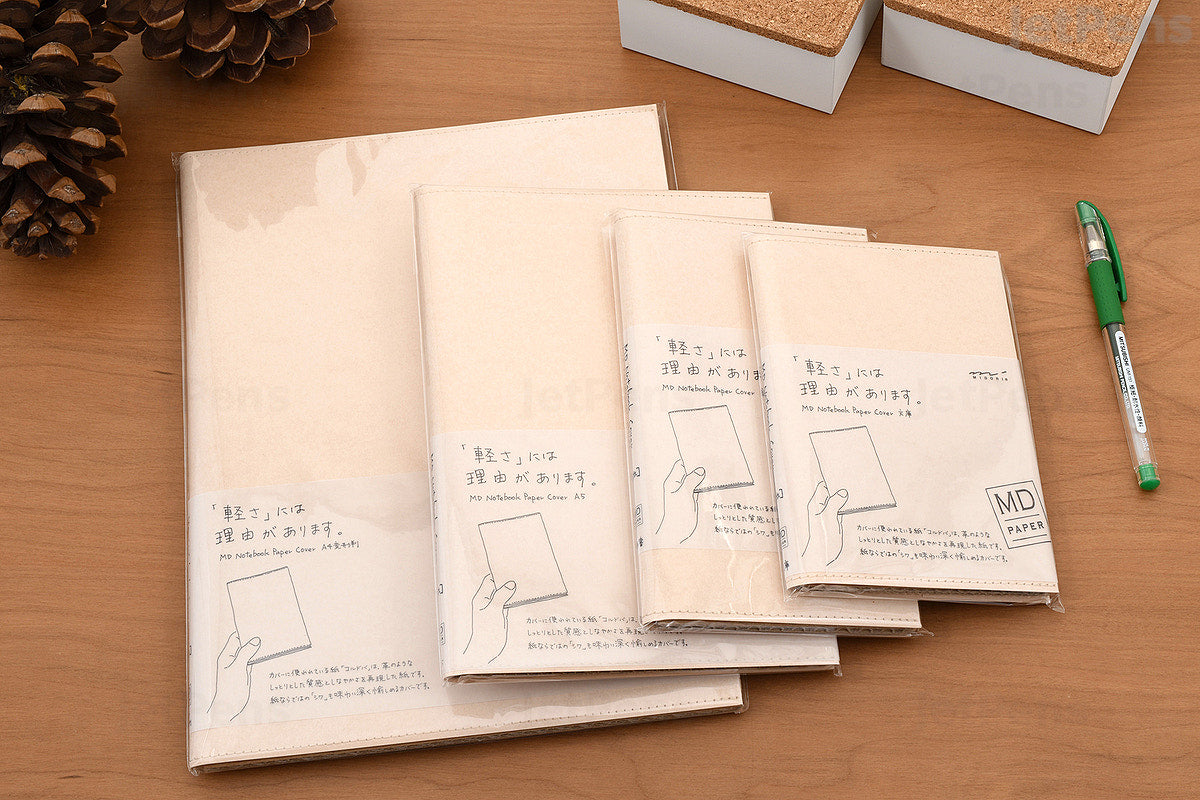 JetPens
「軽さ」には
理由があります。
MD Notebook Paper Cover A4変形判
カバーに使われている紙「コルドバ」は、革のような
しっとりとした質感としなやかさを再現した紙です。
紙ならではの「シワ」も味わい深く愉しめるカバーです。
「軽さ」には
理由があります。
MD Notebook Paper Cover A5
カバーに使われている紙「コルドバ」は、革のような
しっとりとした質感としなやかさを再現
紙ならではの「シワ」も味わい深く愉しめるカバーです。
「軽さ」には
理由がありま
MD Notebook Paper Cover
カバーに使われている紙
しっとりとした質感としな
紙ならではの「シワ」も
「軽さ」には
理由があります。
MD Notebook Paper Cover 文庫
MIDORI
カバーに使われている紙「コルドバ」は、革のような
しっとりとした質感としなやかさを再現した紙です。
紙ならではの「シワ」も味わい深く愉しめるカバーです。
MD
PAPER
MITSUBISHI